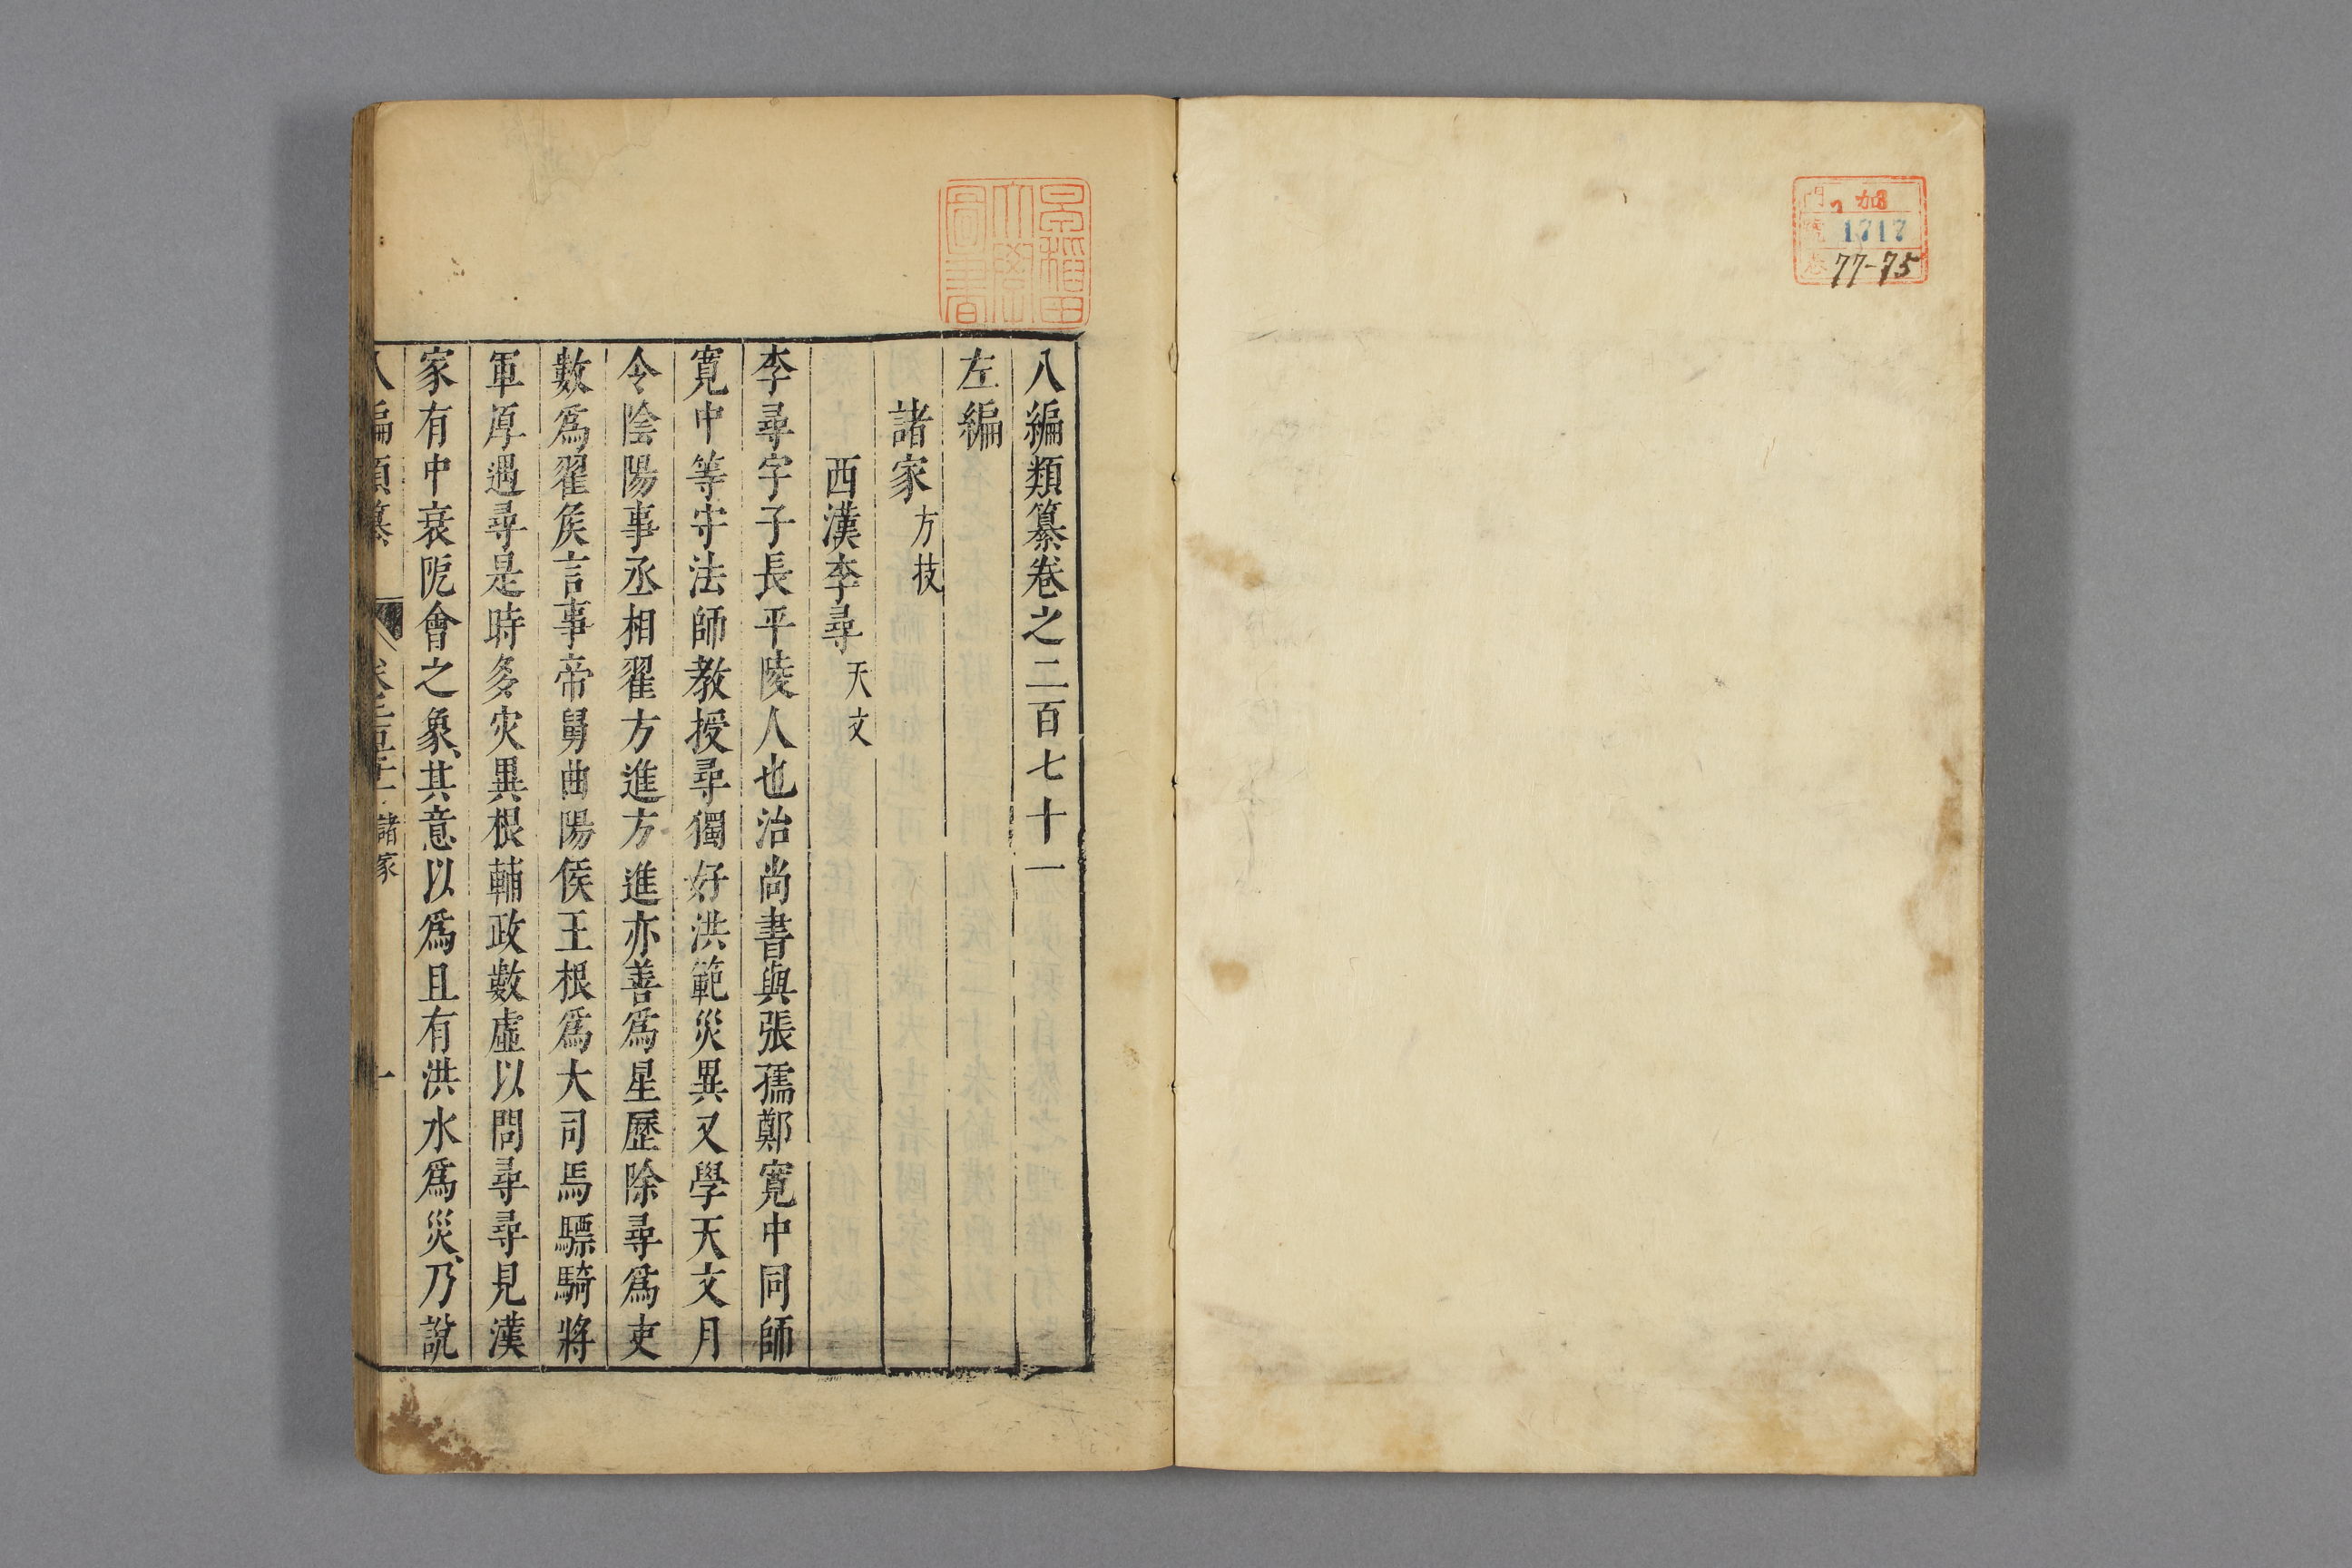 門 加
號 1717
77-75
早稲田大學圖書
八編類纂卷之二百七十一
左編
諸家方技
西漢李尋天文
李尋字子長平陵人也治尚書與張孺鄭寬中同師
寬中等守法師教授尋獨好洪範災異又學天文月
令陰陽事丞相翟方進方進亦善爲星歷除尋爲吏
數爲翟矦言事帝舅曲陽侯王根爲大司馬驃騎將
軍厚遇尋是時多灾異根輔政數虛以問尋尋見漢
家有中衰阨會之象、其意以爲且有洪水爲災、乃說
八編類纂 諸家 一